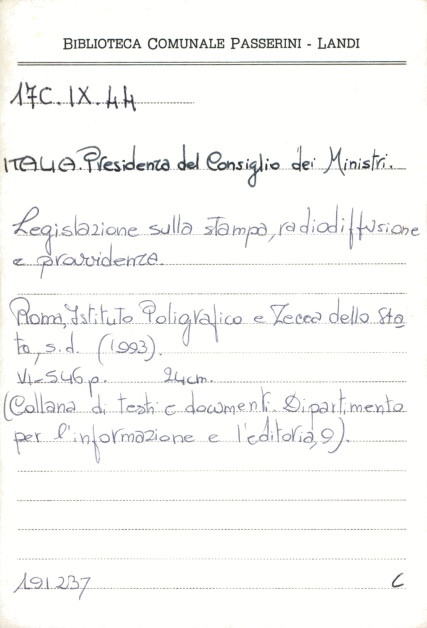 BIBLIOTECA COMUNALE PASSERINI - LANDI
17C.IX.44
ITALIA. Presidenza del Consiglio dei Ministri.
Legislazione sulla stampa, radiodiffusione
e provvidenze.
Roma, Istituto Poligrafico e Zecca dello Sta
to, s.d. (1993).
VI-546 p. 24cm.
(Collana di testi e documenti. Dipartimento
per l'informazione e l'editoria, 9).
191237 C